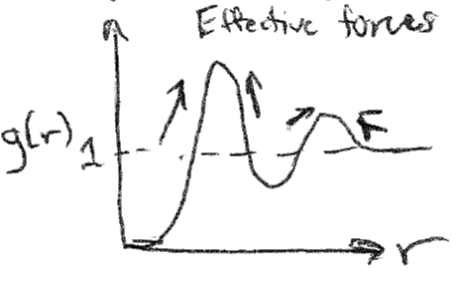 Effective forces
g(r)
1
r